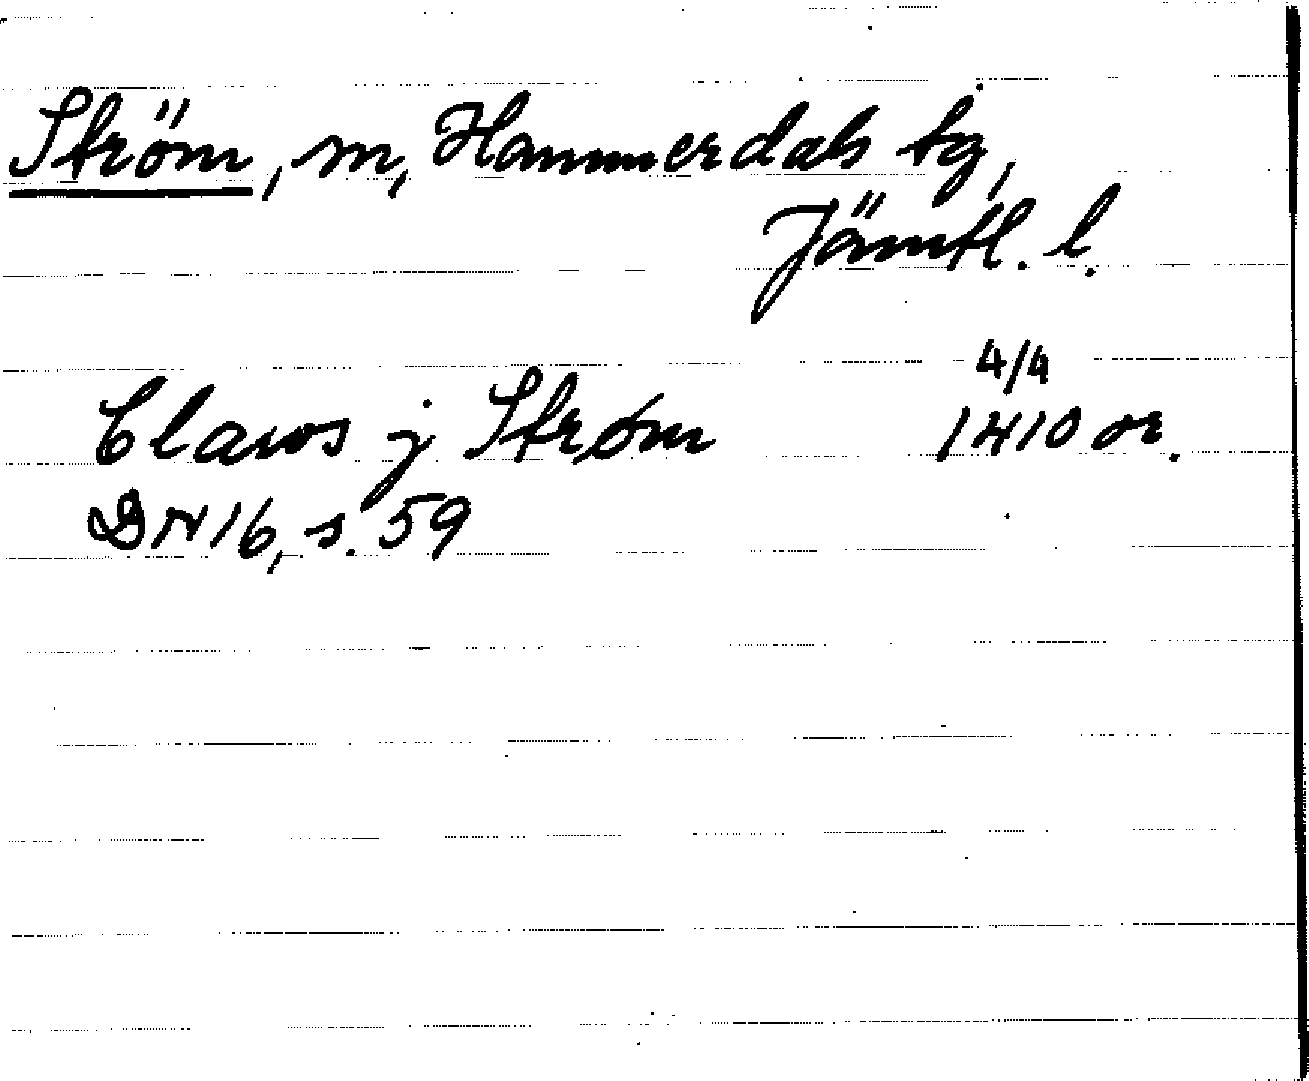 Ström, sn, Hammerdals tg,
Jämtl. l.
4/4
Clawos j Strøm 1410 or.
DN 16, s. 59